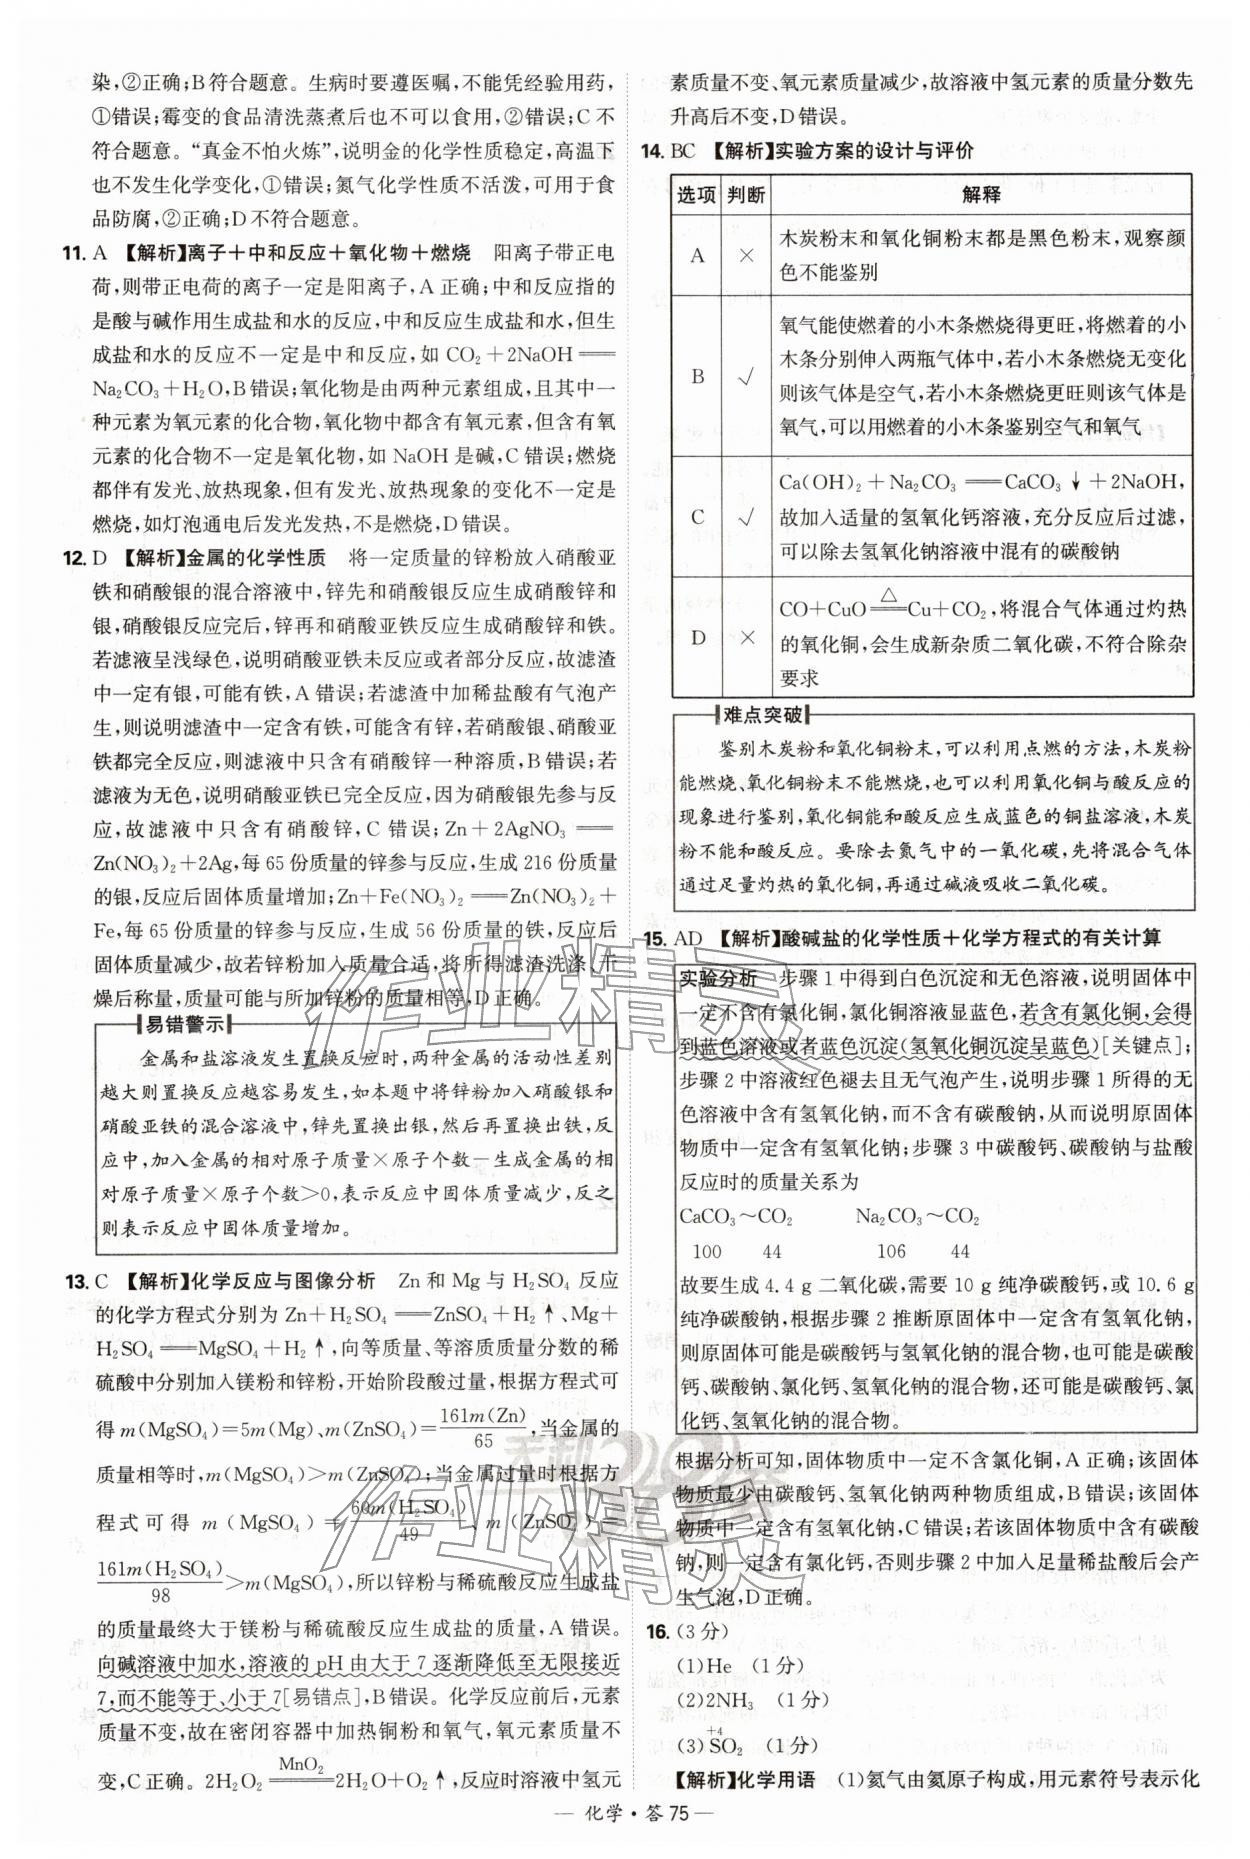 染,②正确;B符合题意。生病时要遵医嘱,不能凭经验用药,
①错误;霉变的食品清洗蒸煮后也不可以食用,②错误;C不
符合题意。“真金不怕火炼”,说明金的化学性质稳定,高温下
也不发生化学变化,①错误;氮气化学性质不活泼,可用于食
品防腐,②正确;D不符合题意。
11. A 【解析】离子+中和反应+氧化物+燃烧 阳离子带正电
荷,则带正电荷的离子一定是阳离子,A正确;中和反应指的
是酸与碱作用生成盐和水的反应,中和反应生成盐和水,但生
成盐和水的反应不一定是中和反应,如 CO₂+2NaOH══
Na₂CO₃+H₂O,B错误;氧化物是由两种元素组成,且其中一
种元素为氧元素的化合物,氧化物中都含有氧元素,但含有氧
元素的化合物不一定是氧化物,如 NaOH 是碱,C错误;燃烧
都伴有发光、放热现象,但有发光、放热现象的变化不一定是
燃烧,如灯泡通电后发光发热,不是燃烧,D错误。
12. D 【解析】金属的化学性质 将一定质量的锌粉放入硝酸亚
铁和硝酸银的混合溶液中,锌先和硝酸银反应生成硝酸锌和
银,硝酸银反应完后,锌再和硝酸亚铁反应生成硝酸锌和铁。
若滤液呈浅绿色,说明硝酸亚铁未反应或者部分反应,故滤渣
中一定有银,可能有铁,A错误;若滤渣中加稀盐酸有气泡产
生,则说明滤渣中一定含有铁,可能含有锌,若硝酸银、硝酸亚
铁都完全反应,则滤液中只含有硝酸锌一种溶质,B错误;若
滤液为无色,说明硝酸亚铁已完全反应,因为硝酸银先参与反
应,故滤液中只含有硝酸锌,C错误;Zn+2AgNO₃══
Zn(NO₃)₂+2Ag,每65份质量的锌参与反应,生成216份质量
的银,反应后固体质量增加;Zn+Fe(NO₃)₂══Zn(NO₃)₂+
Fe,每65份质量的锌参与反应,生成56份质量的铁,反应后
固体质量减少,故若锌粉加入质量合适,将所得滤渣洗涤、干
燥后称量,质量可能与所加锌粉的质量相等,D正确。
易错警示
金属和盐溶液发生置换反应时,两种金属的活动性差别
越大则置换反应越容易发生,如本题中将锌粉加入硝酸银和
硝酸亚铁的混合溶液中,锌先置换出银,然后再置换出铁,反
应中,加入金属的相对原子质量×原子个数-生成金属的相
对原子质量×原子个数>0,表示反应中固体质量减少,反之
则表示反应中固体质量增加。
13. C 【解析】化学反应与图像分析 Zn和Mg与H₂SO₄反应
的化学方程式分别为Zn+H₂SO₄══ZnSO₄+H₂↑、Mg+
H₂SO₄══MgSO₄+H₂↑,向等质量、等溶质质量分数的稀
硫酸中分别加入镁粉和锌粉,开始阶段酸过量,根据方程式可
得m(MgSO₄)=5m(Mg)、m(ZnSO₄)=161m(Zn)/65,当金属的
质量相等时,m(MgSO₄)>m(ZnSO₄);当金属过量时根据方
程式可得 m(MgSO₄)=60m(H₂SO₄)/49、m(ZnSO₄)=
161m(H₂SO₄)/98>m(MgSO₄),所以锌粉与稀硫酸反应生成盐
的质量最终大于镁粉与稀硫酸反应生成盐的质量,A错误。
向碱溶液中加水,溶液的pH由大于7逐渐降低至无限接近
7,而不能等于、小于7[易错点],B错误。化学反应前后,元素
质量不变,故在密闭容器中加热铜粉和氧气,氧元素质量不
变,C正确。2H₂O₂ ══MnO₂══ 2H₂O+O₂↑,反应时溶液中氢元
素质量不变、氧元素质量减少,故溶液中氢元素的质量分数先
升高后不变,D错误。
14. BC 【解析】实验方案的设计与评价
选项 判断 解释
A × 木炭粉末和氧化铜粉末都是黑色粉末,观察颜
色不能鉴别
B √ 氧气能使燃着的小木条燃烧得更旺,将燃着的小
木条分别伸入两瓶气体中,若小木条燃烧无变化
则该气体是空气,若小木条燃烧更旺则该气体是
氧气,可以用燃着的小木条鉴别空气和氧气
C √ Ca(OH)₂+Na₂CO₃══CaCO₃↓+2NaOH,
故加入适量的氢氧化钙溶液,充分反应后过滤,
可以除去氢氧化钠溶液中混有的碳酸钠
D × CO+CuO══△══Cu+CO₂,将混合气体通过灼热
的氧化铜,会生成新杂质二氧化碳,不符合除杂
要求
难点突破
鉴别木炭粉和氧化铜粉末,可以利用点燃的方法,木炭粉
能燃烧、氧化铜粉末不能燃烧,也可以利用氧化铜与酸反应的
现象进行鉴别,氧化铜能和酸反应生成蓝色的铜盐溶液,木炭
粉不能和酸反应。要除去氮气中的一氧化碳,先将混合气体
通过足量灼热的氧化铜,再通过碱液吸收二氧化碳。
15. AD 【解析】酸碱盐的化学性质+化学方程式的有关计算
实验分析 步骤1中得到白色沉淀和无色溶液,说明固体中
一定不含有氯化铜,氯化铜溶液显蓝色,若含有氯化铜,会得
到蓝色溶液或者蓝色沉淀(氢氧化铜沉淀呈蓝色)[关键点];
步骤2中溶液红色褪去且无气泡产生,说明步骤1所得的无
色溶液中含有氢氧化钠,而不含有碳酸钠,从而说明原固体
物质中一定含有氢氧化钠;步骤3中碳酸钙、碳酸钠与盐酸
反应时的质量关系为
CaCO₃~CO₂ Na₂CO₃~CO₂
100 44 106 44
故要生成4.4 g二氧化碳,需要10 g纯净碳酸钙,或10.6 g
纯净碳酸钠,根据步骤2推断原固体中一定含有氢氧化钠,
则原固体可能是碳酸钙与氢氧化钠的混合物,也可能是碳酸
钙、碳酸钠、氯化钙、氢氧化钠的混合物,还可能是碳酸钙、氯
化钙、氢氧化钠的混合物。
根据分析可知,固体物质中一定不含氯化铜,A正确;该固体
物质最少由碳酸钙、氢氧化钠两种物质组成,B错误;该固体
物质中一定含有氢氧化钠,C错误;若该固体物质中含有碳酸
钠,则一定含有氯化钙,否则步骤2中加入足量稀盐酸后会产
生气泡,D正确。
16. (3分)
(1)He (1分)
(2)2NH₃ (1分)
(3)S⁺⁴O₂ (1分)
【解析】化学用语 (1)氦气由氦原子构成,用元素符号表示化
— 化学·答75 —
作业精灵
作业精灵